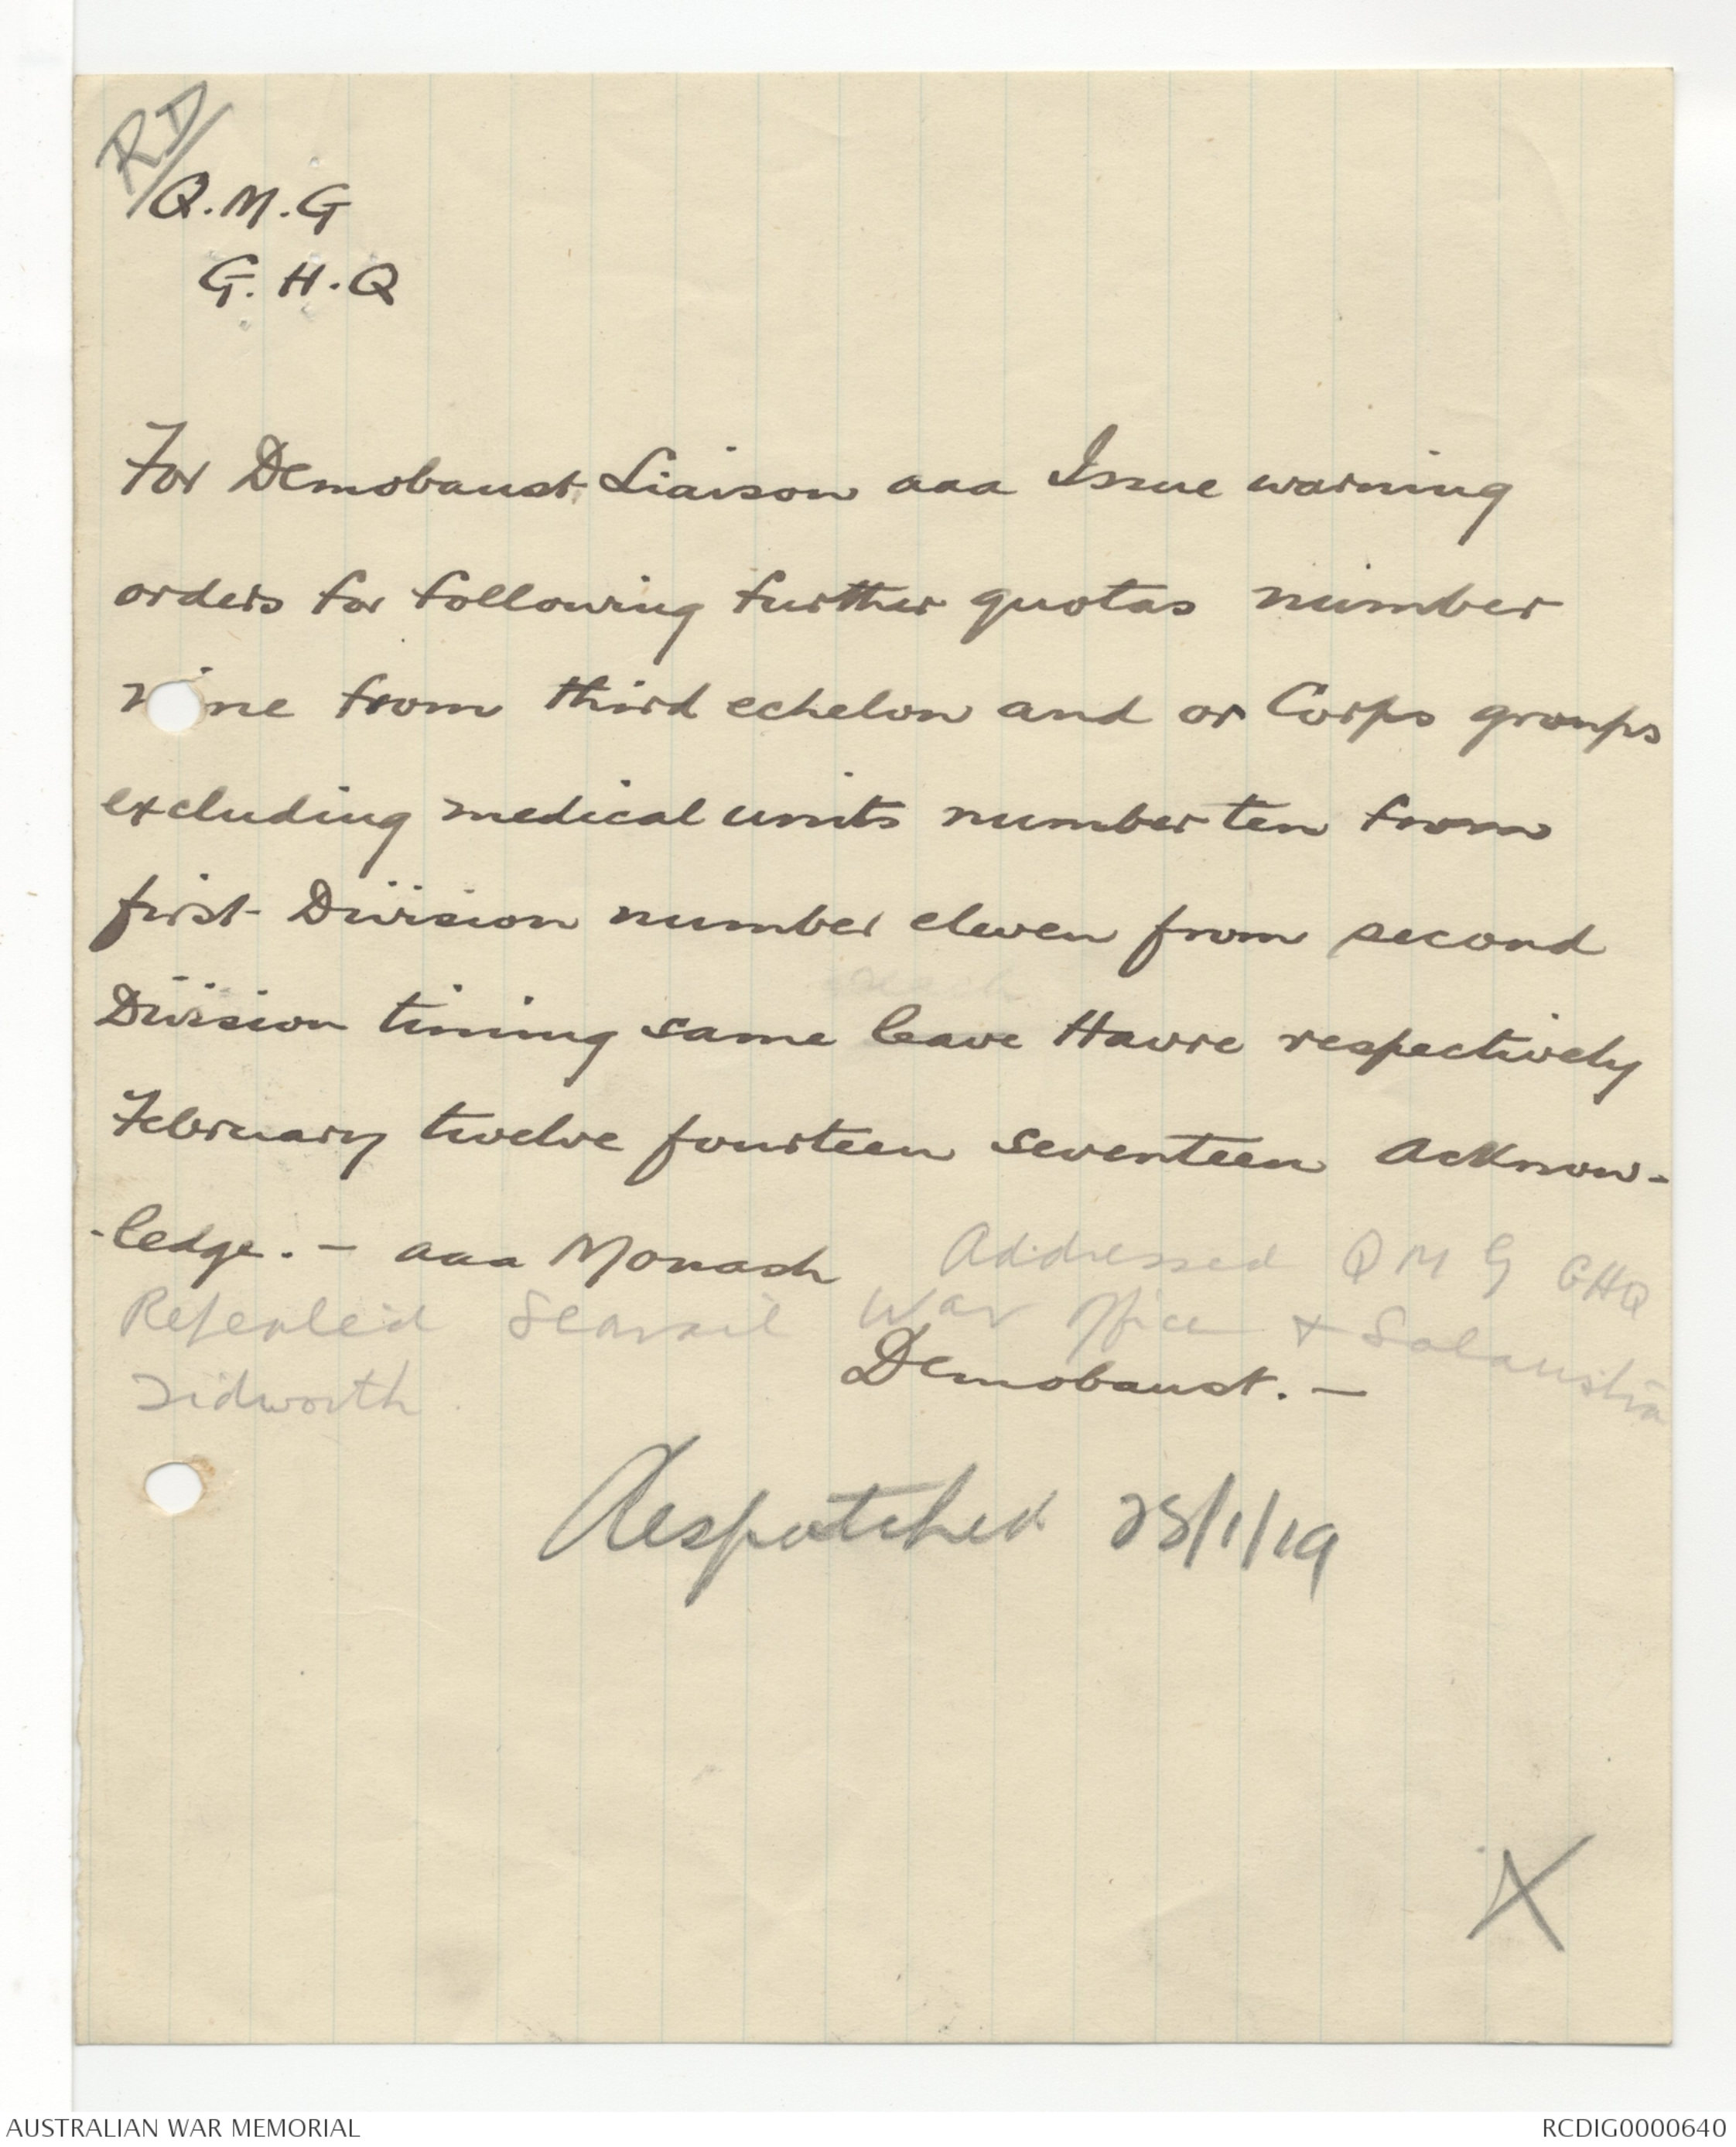 RD
Q.M.G
G.H.Q
For Demobaust Liaison aaa Issue warning
orders for following further quotas number
nine from third echelon and or Corps groups
excluding medical units number ten from
first Division number eleven from second
Division timing same leave Havre respectively
February twelve fourteen seventeen acknow-
-ledge. - aaa Monash Addressed QMG GHQ
Repeated War Office + Salaustra
Tidworth
Demobaust. -
Despatched 25/1/19
X
AUSTRALIAN WAR MEMORIAL
RCDIG0000640